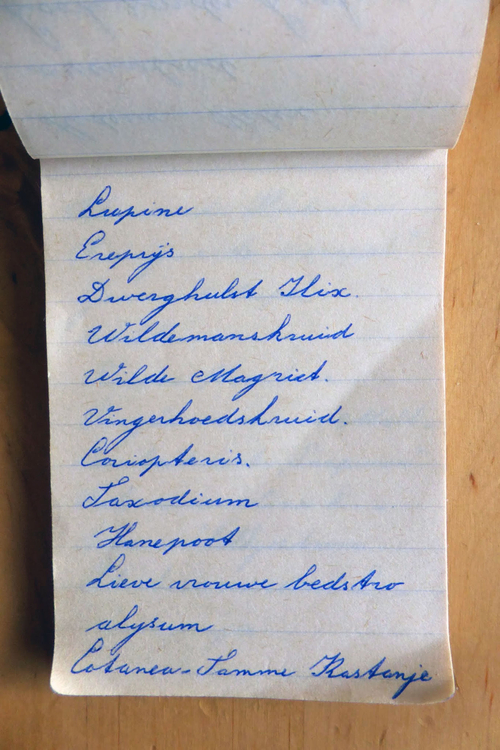 Lupine
Ereprijs
Dwerghulst Ilix.
Wildemanskruid
Wilde Magriet.
Vingerhoedskruid.
Coriopteris.
Taxodium
Hanepoot
Lieve vrouwe bedstro
alysum
Cotanea-Tamme Kastanje